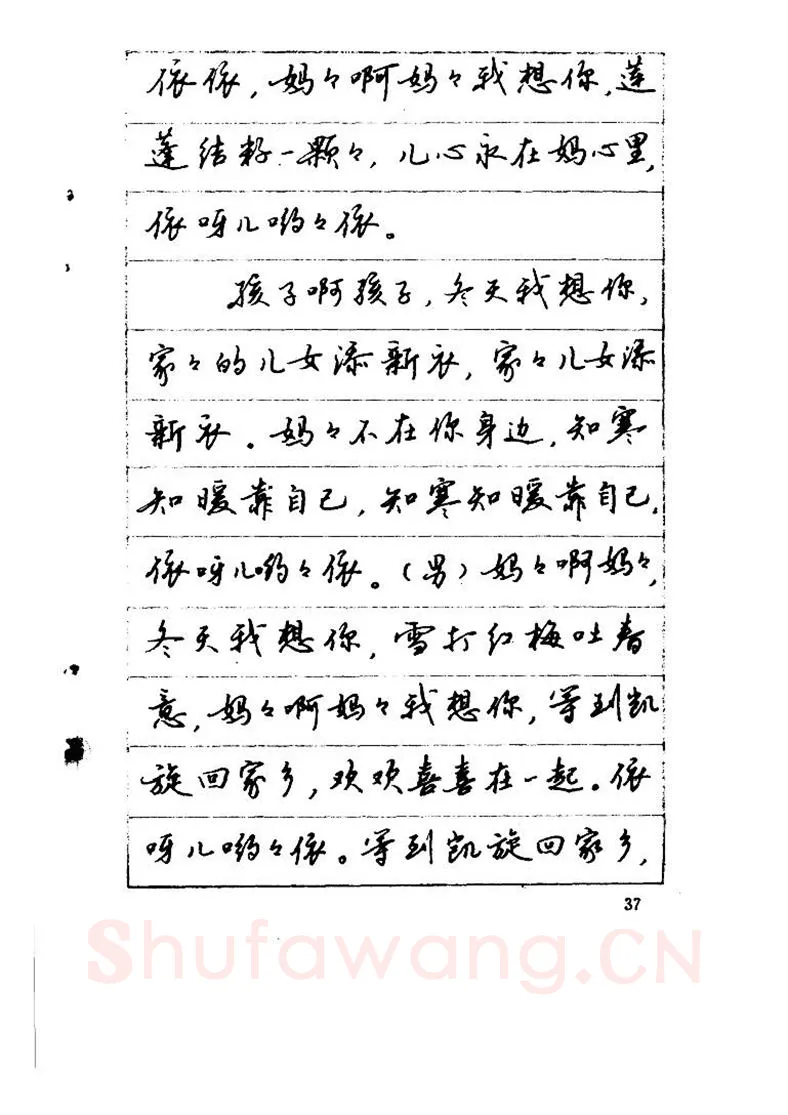 依依，妈々啊妈々我想你，莲
莲结籽一颗々，儿心永在妈心里，
依呀儿哟々依。
孩子啊孩子，冬天我想你，
家々的儿女添新衣，家々儿女添
新衣。妈々不在你身边，知寒
知暖靠自己，知寒知暖靠自己。
依呀儿哟々依。（男）妈々啊妈々，
冬天我想你，雪打红梅吐春
意，妈々啊妈々我想你，等到凯
旋回家乡，欢欢喜喜在一起。依
呀儿哟々依。等到凯旋回家乡，
37
Shufawang.CN